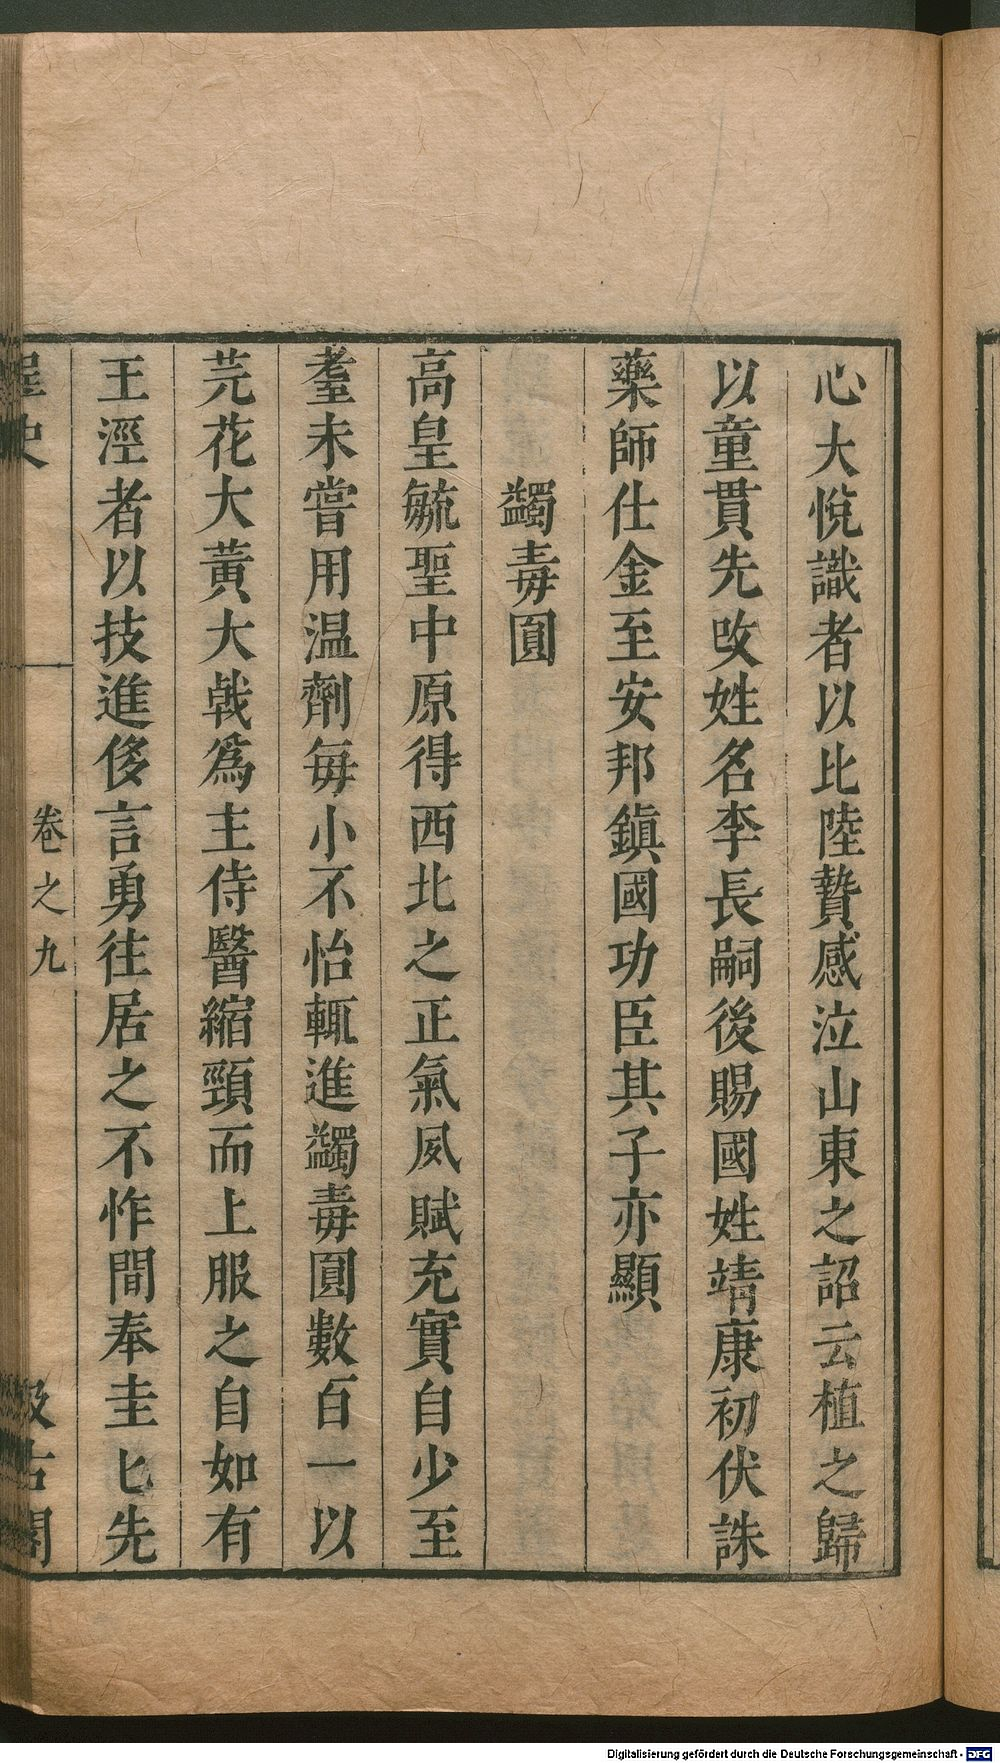 心大悅識者以比陸贄感泣山東之詔云植之歸
以童貫先改姓名李長嗣後賜國姓靖康初伏誅
藥師仕金至安邦鎭國功臣其子亦顯
蠲毒圓
高皇毓聖中原得西北之正氣夙賦充實自少至
耋未嘗用温劑每小不怡輒進蠲毒圓數百一以
芫花大黃大戟爲主侍醫縮頸而上服之自如有
王涇者以技進侈言勇往居之不怍間奉圭匕先
桯史
卷之九
汲古閣
Digitalisierung gefördert durch die Deutsche Forschungsgemeinschaft - DFG